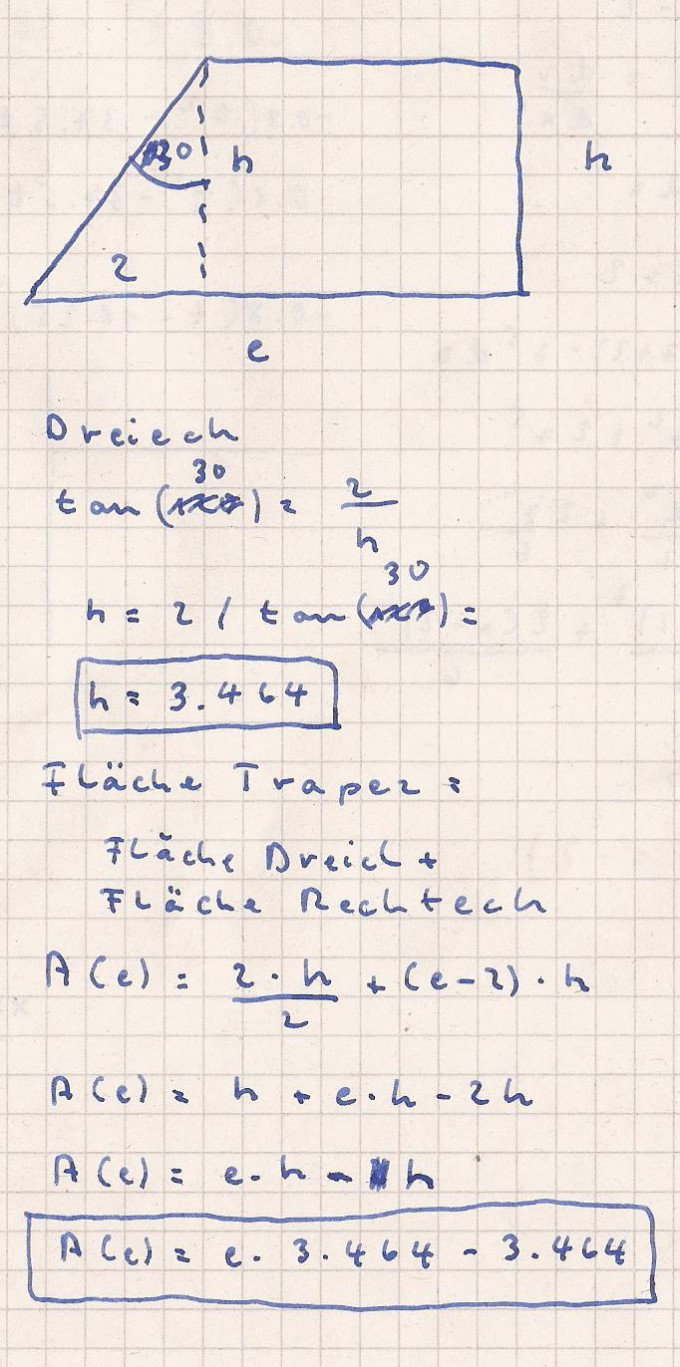 30 h h
2
e
Dreieck
30
tan( ) = 2/h
30
h = 2 / tan( ) =
h = 3.464
Fläche Trapez =
Fläche Dreick +
Fläche Rechteck
A(e) = 2·h/2 + (e-2)·h
A(e) = h + e·h - 2h
A(e) = e·h - h
A(e) = e·3.464 - 3.464